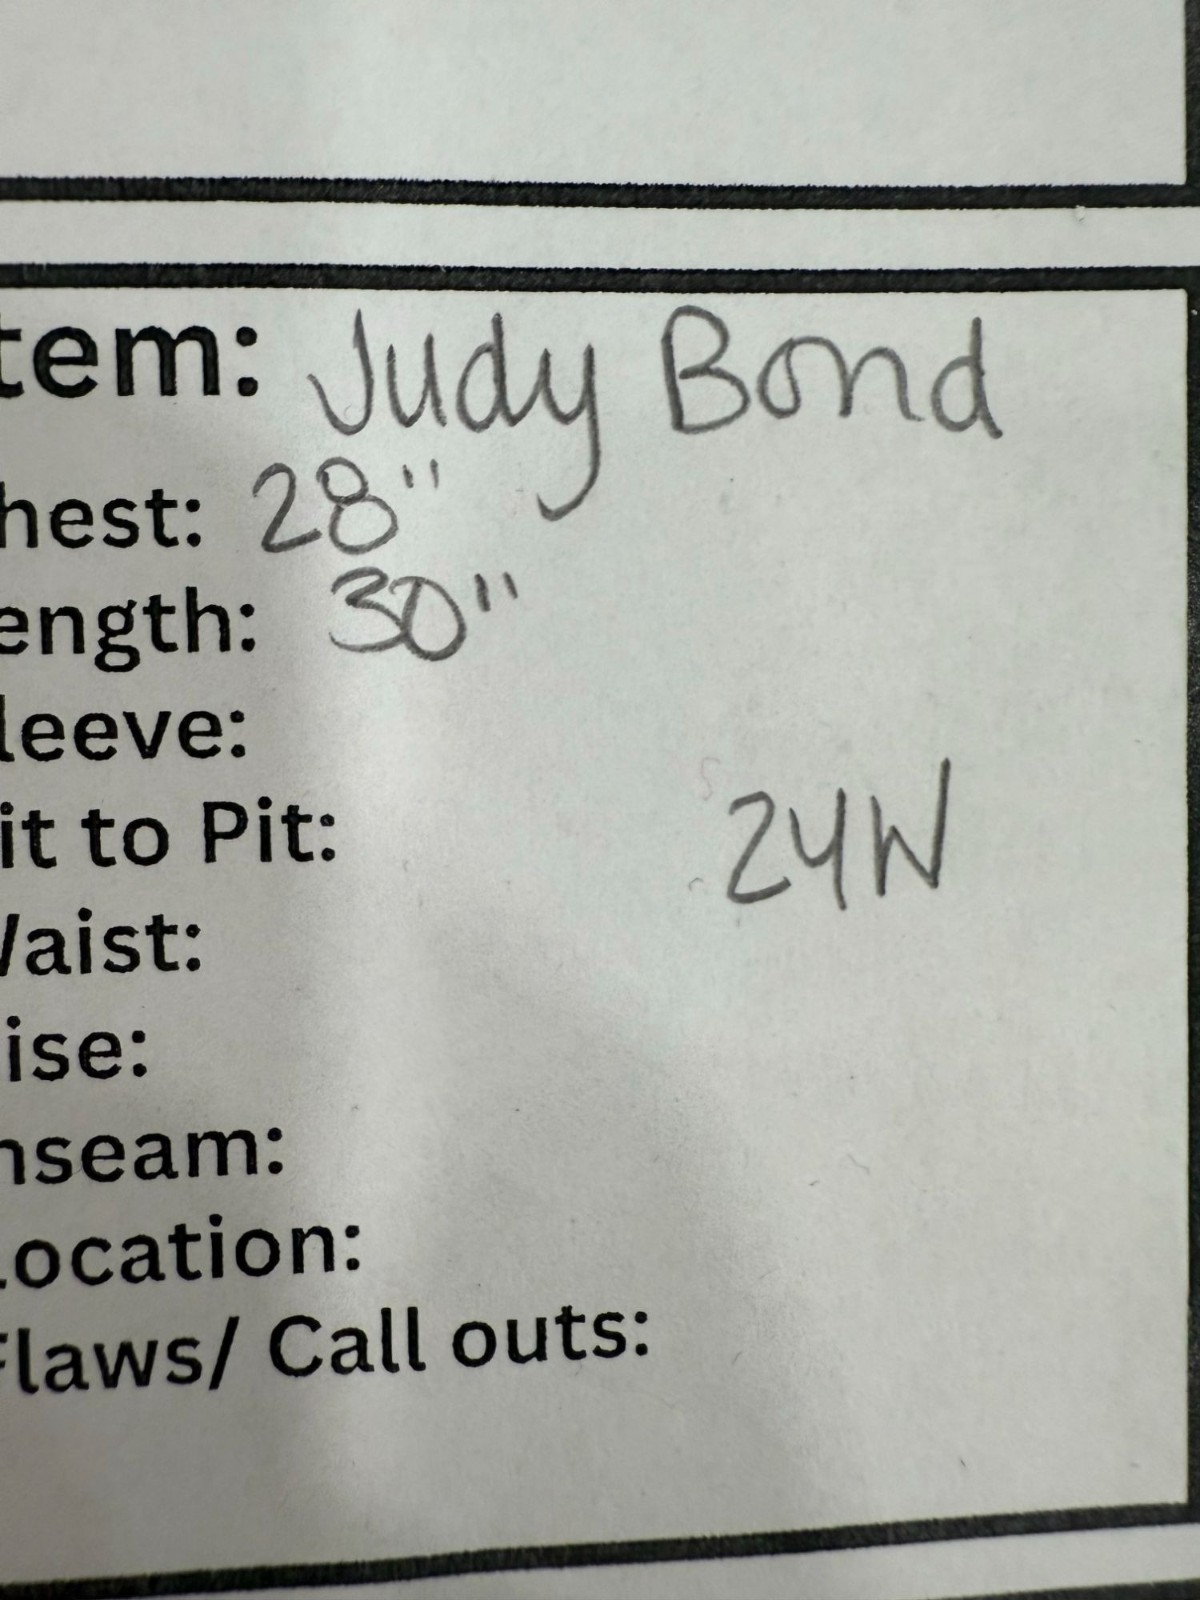 tem: Judy Bond
hest: 28"
ength: 30"
leeve:
it to Pit:
24W
Waist:
ise:
nseam:
Location:
Flaws/ Call outs: